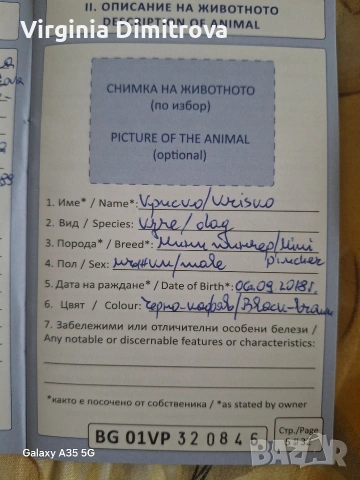 Virginia Dimitrova
II. ОПИСАНИЕ НА ЖИВОТНОТО
DESCRIPTION OF ANIMAL
СНИМКА НА ЖИВОТНОТО
(по избор)
PICTURE OF THE ANIMAL
(optional)
1. Име* / Name*:
2. Вид / Species: куче / dog
3. Порода* / Breed*: Мини пинчер / Mini
pincher
4. Пол / Sex: мъжки/male
5. Дата на раждане* / Date of Birth*: 06.09.2018г.
6. Цвят / Colour: Черно-кафяв/Black-brown
7. Забележими или отличителни особени белези /
Any notable or discernable features or characteristics:
*както е посочено от собственика / *as stated by owner
BG 01VP 320846
Стр./Page
Galaxy A35 5G
bazar